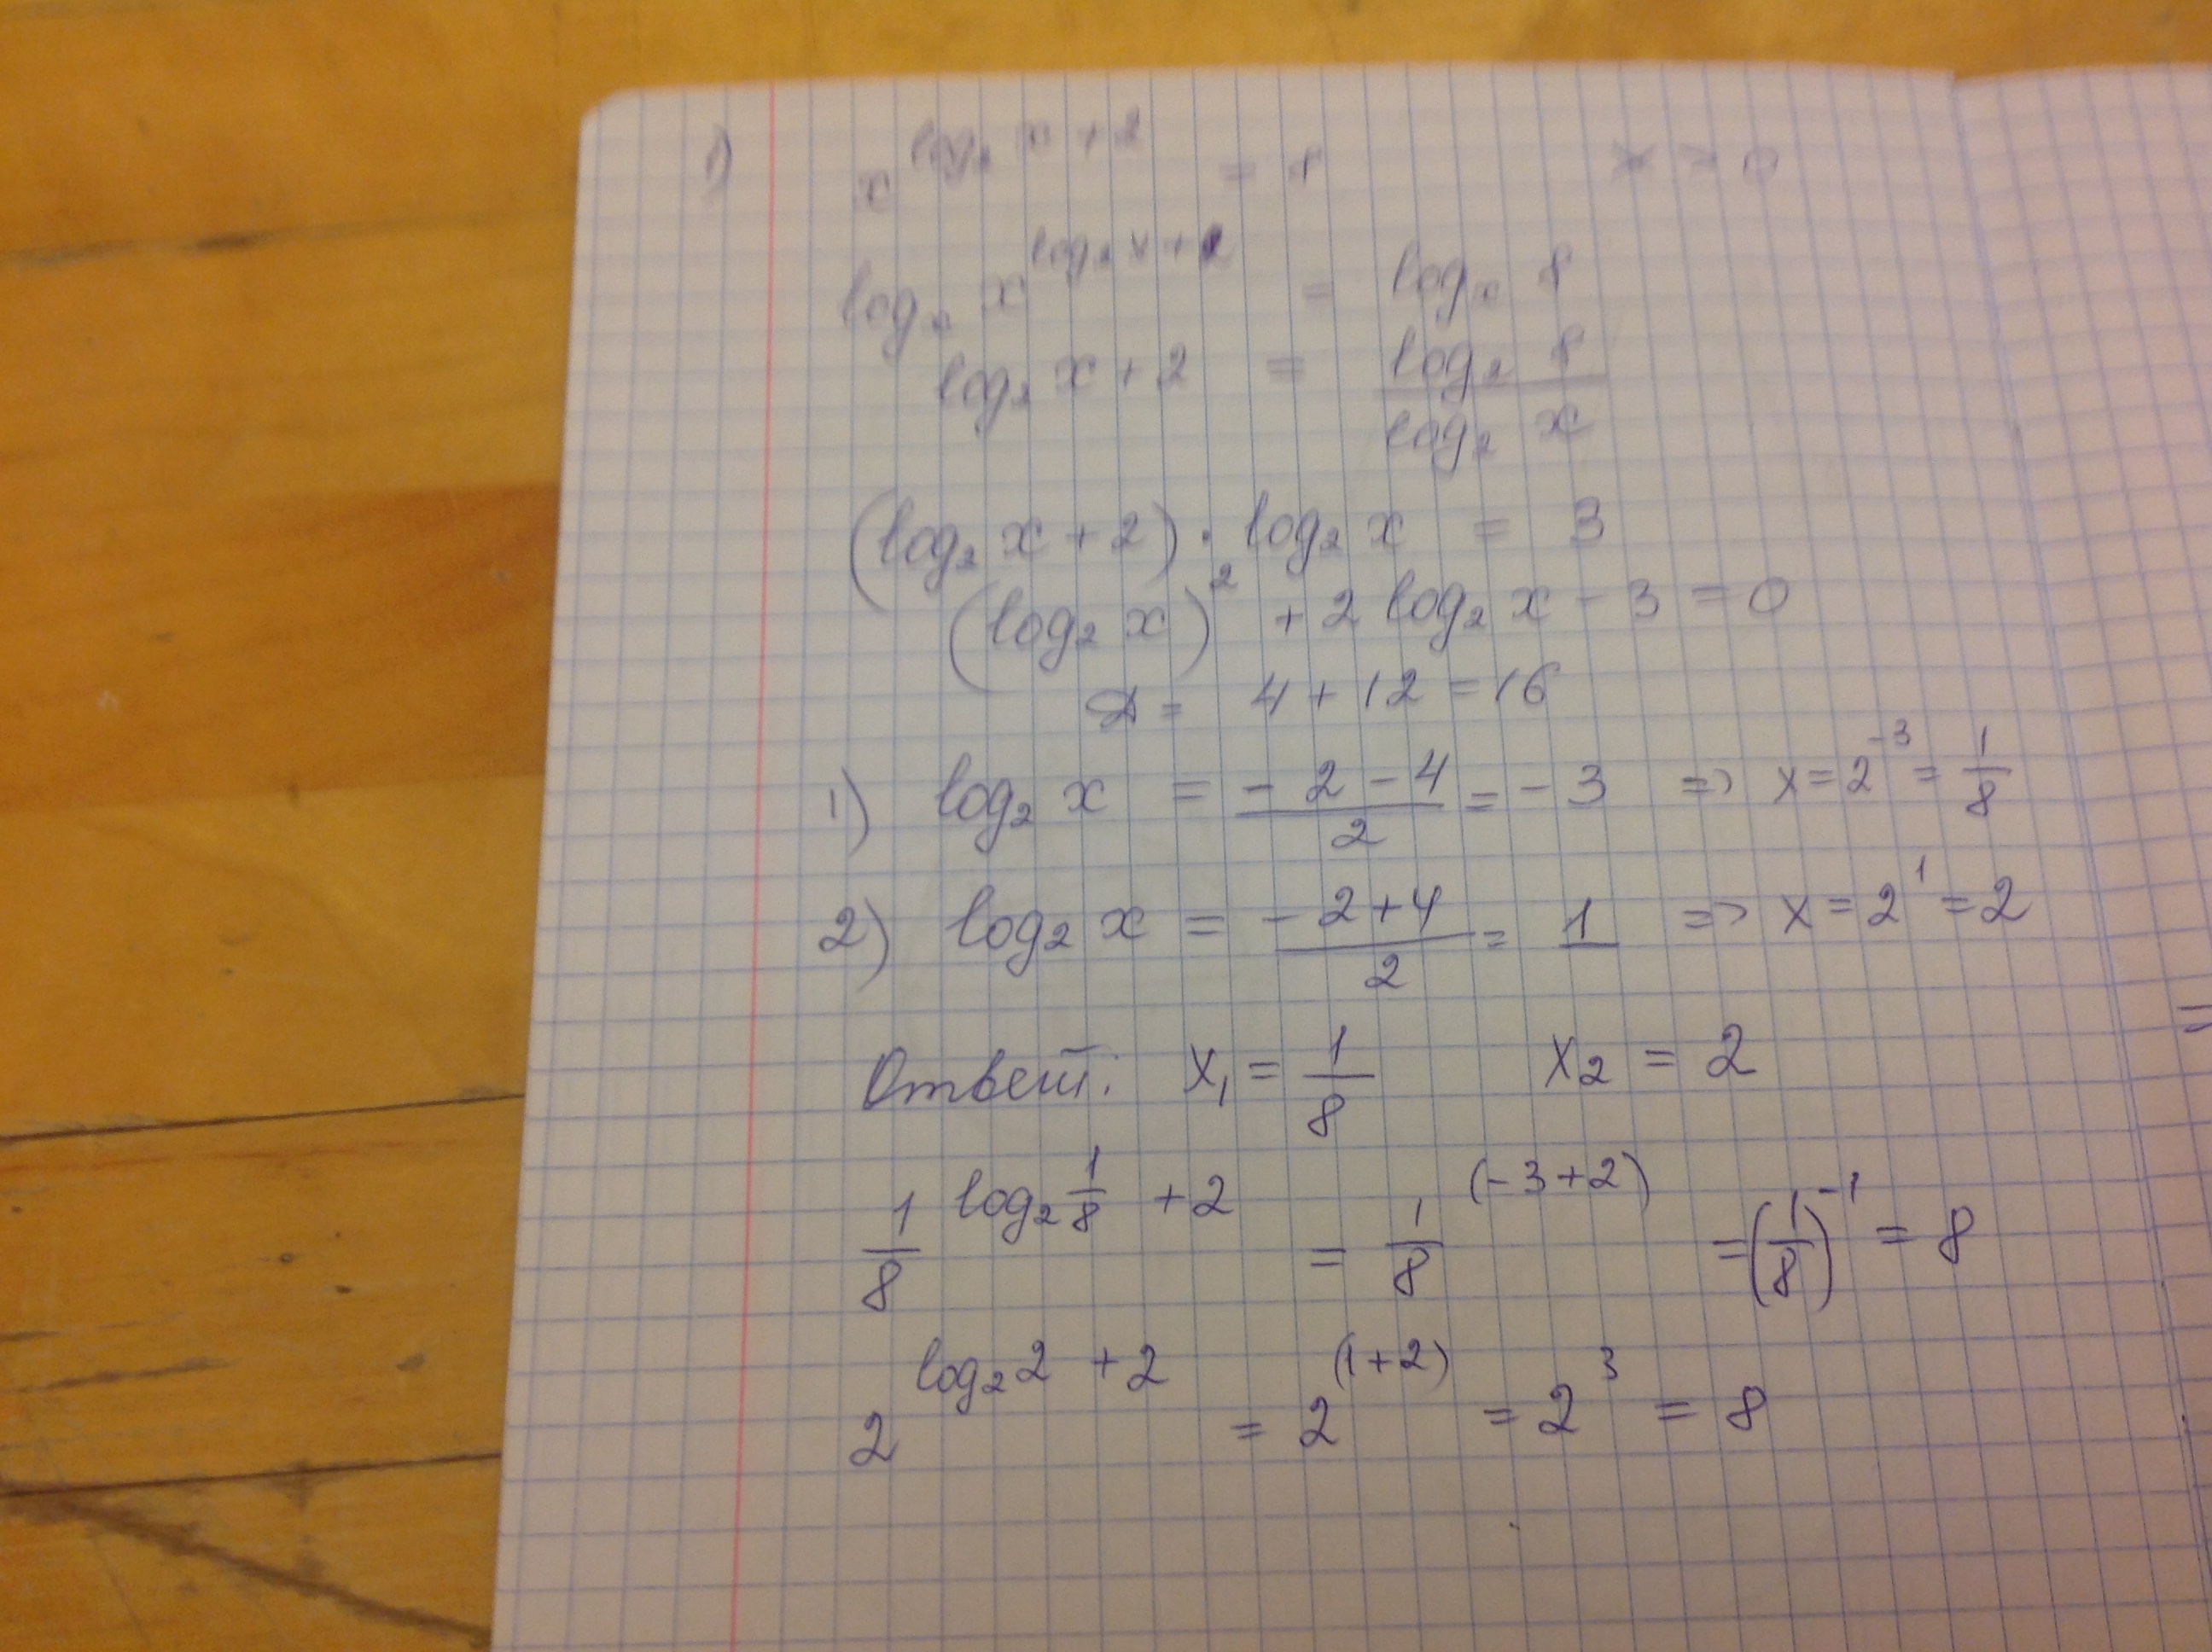 1) x^(log₂ x + 2) = 8 x > 0
logₓ x^(log₂ x + 2) = logₓ 8
log₂ x + 2 = log₂ 8 / log₂ x
(log₂ x + 2) · log₂ x = 3
(log₂ x)² + 2 log₂ x - 3 = 0
D = 4 + 12 = 16
1) log₂ x = (-2 - 4)/2 = -3 => x = 2⁻³ = 1/8
2) log₂ x = (-2 + 4)/2 = 1 => x = 2¹ = 2
Ответ: x₁ = 1/8 x₂ = 2
1/8^(log₂ 1/8 + 2) = 1/8^(-3+2) = (1/8)⁻¹ = 8
2^(log₂ 2 + 2) = 2^(1+2) = 2³ = 8
=